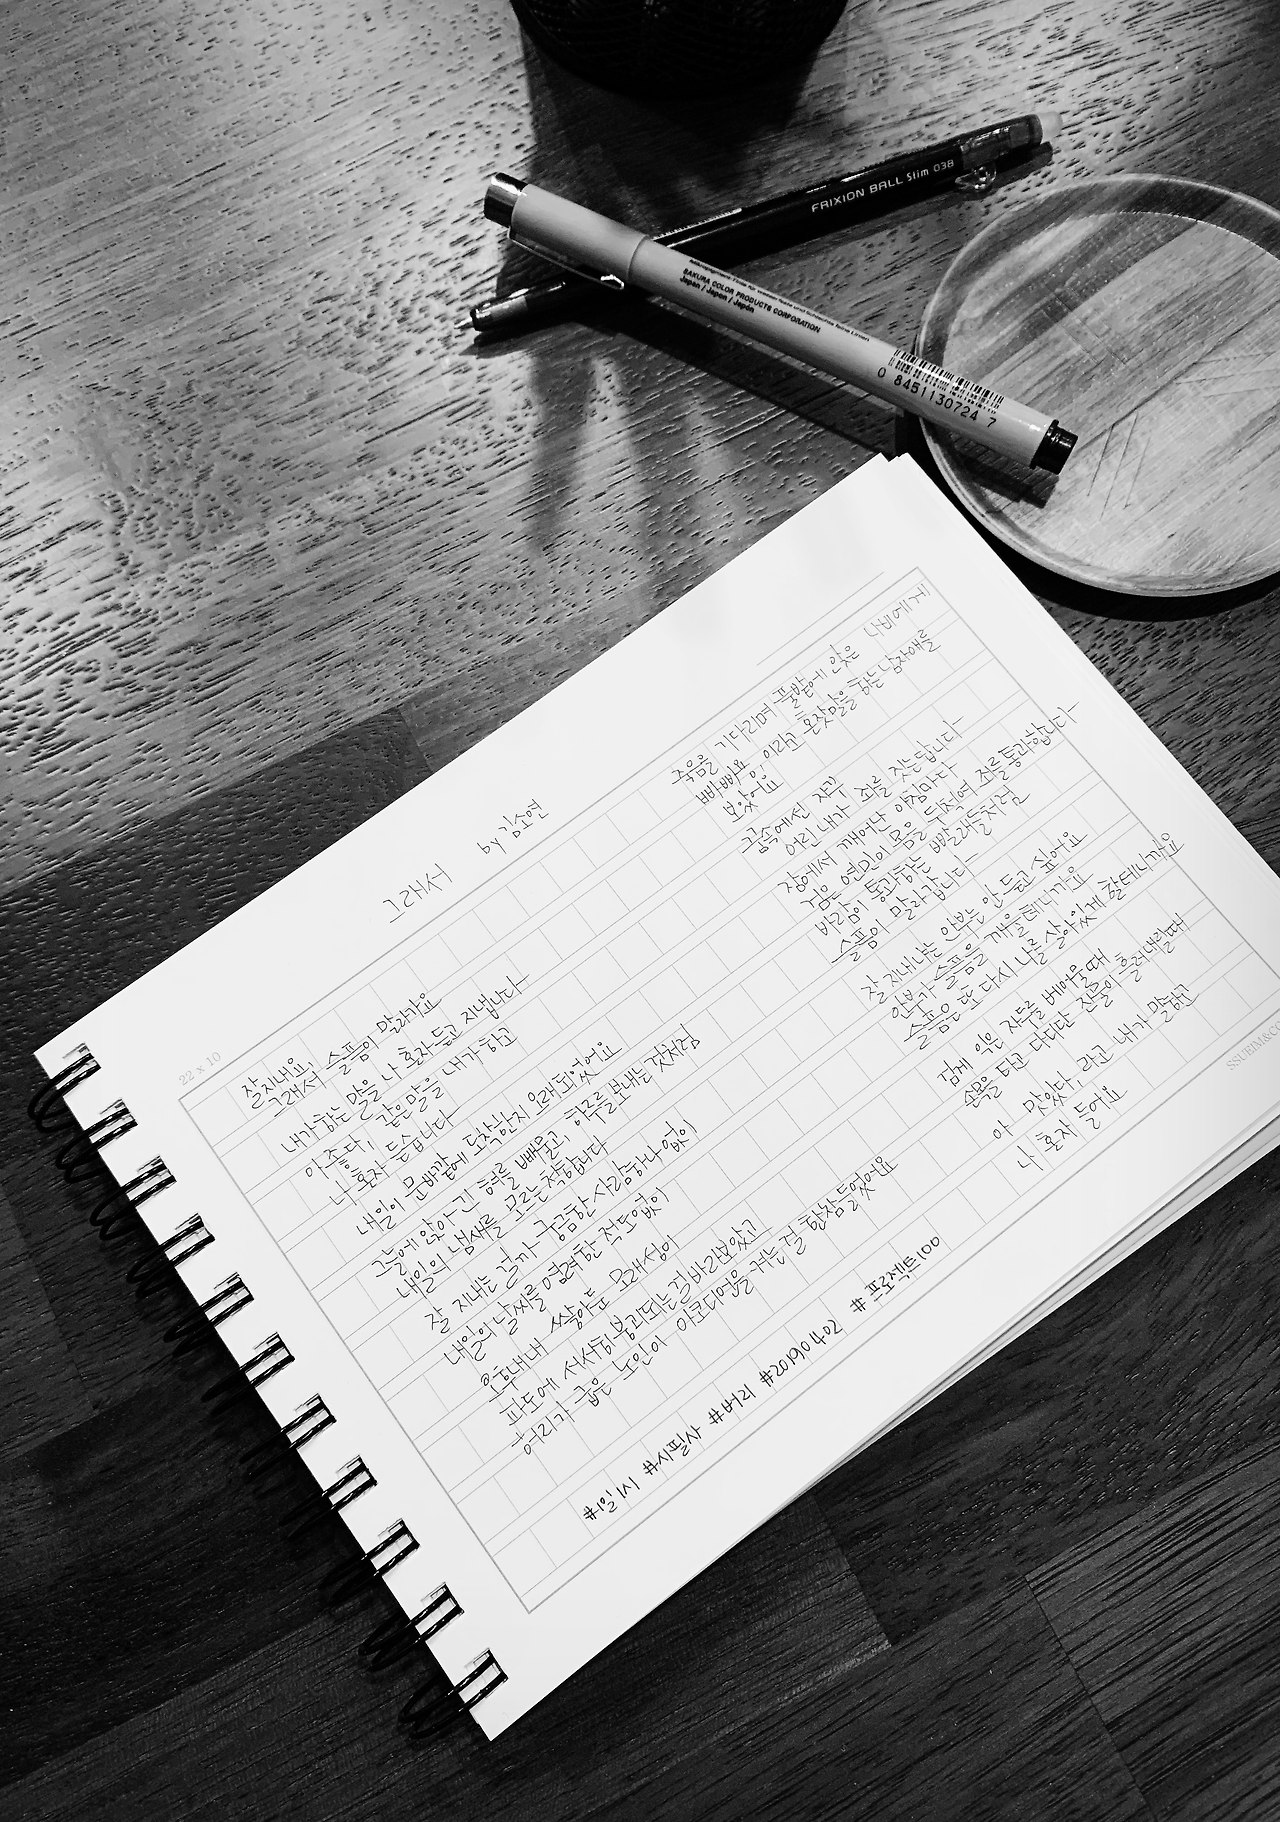 FRIXION BALL Slim 038
SAKURA COLOR PRODUCTS CORPORATION
Japan / Japon / Japón
0 8451130724 7
그래서 by 김소연
22 x 10
잘 지내요,
그래서 슬픔이 말라가요
내가 하는 말을 나 혼자 듣고 지냅니다
아 좋다, 같은 말을 내가 하고
나 혼자 듣습니다
내일이 문바깥에 도착한지 오래되었어요
그늘에 앉아 긴 혀를 빼물고 하루를 보내는 것처럼
내일의 냄새를 모르는척합니다
잘 지내는 걸까 궁금한 사람하나 없이
내일의 날씨를 염려한 적도 없이
오후내내 쌓아둔 모래성이
파도에 서서히 붕괴되는 걸 바라보았고
허리가 굽은 노인이 아코디언을 켜는 걸 한참 들었어요
죽음을 기다리며 풀밭에 앉은 나비에게
빠삐용, 이라고 혼잣말을 하는 남자애를
보았어요
꿈속에선 자꾸
어린 내가 죄를 짓는답니다
잠에서 깨어난 아침마다
검은 연민이 몸을 뒤척여 죄를 통과합니다
바람이 통과하는 빨래들처럼
슬픔이 말라갑니다
잘 지내냐는 안부는 안 듣고 싶어요
안부가 슬픔을 깨울테니까요
슬픔은 또 다시 나를 살아있게 할테니까요
검게 익은 자두를 베어물 때
손목을 타고 다디단 진물이 흘러내릴 때
아 맛있다, 라고 내가 말하고
나 혼자 들어요
#1일1시 #시필사 #버리 #20190402 #프로젝트100